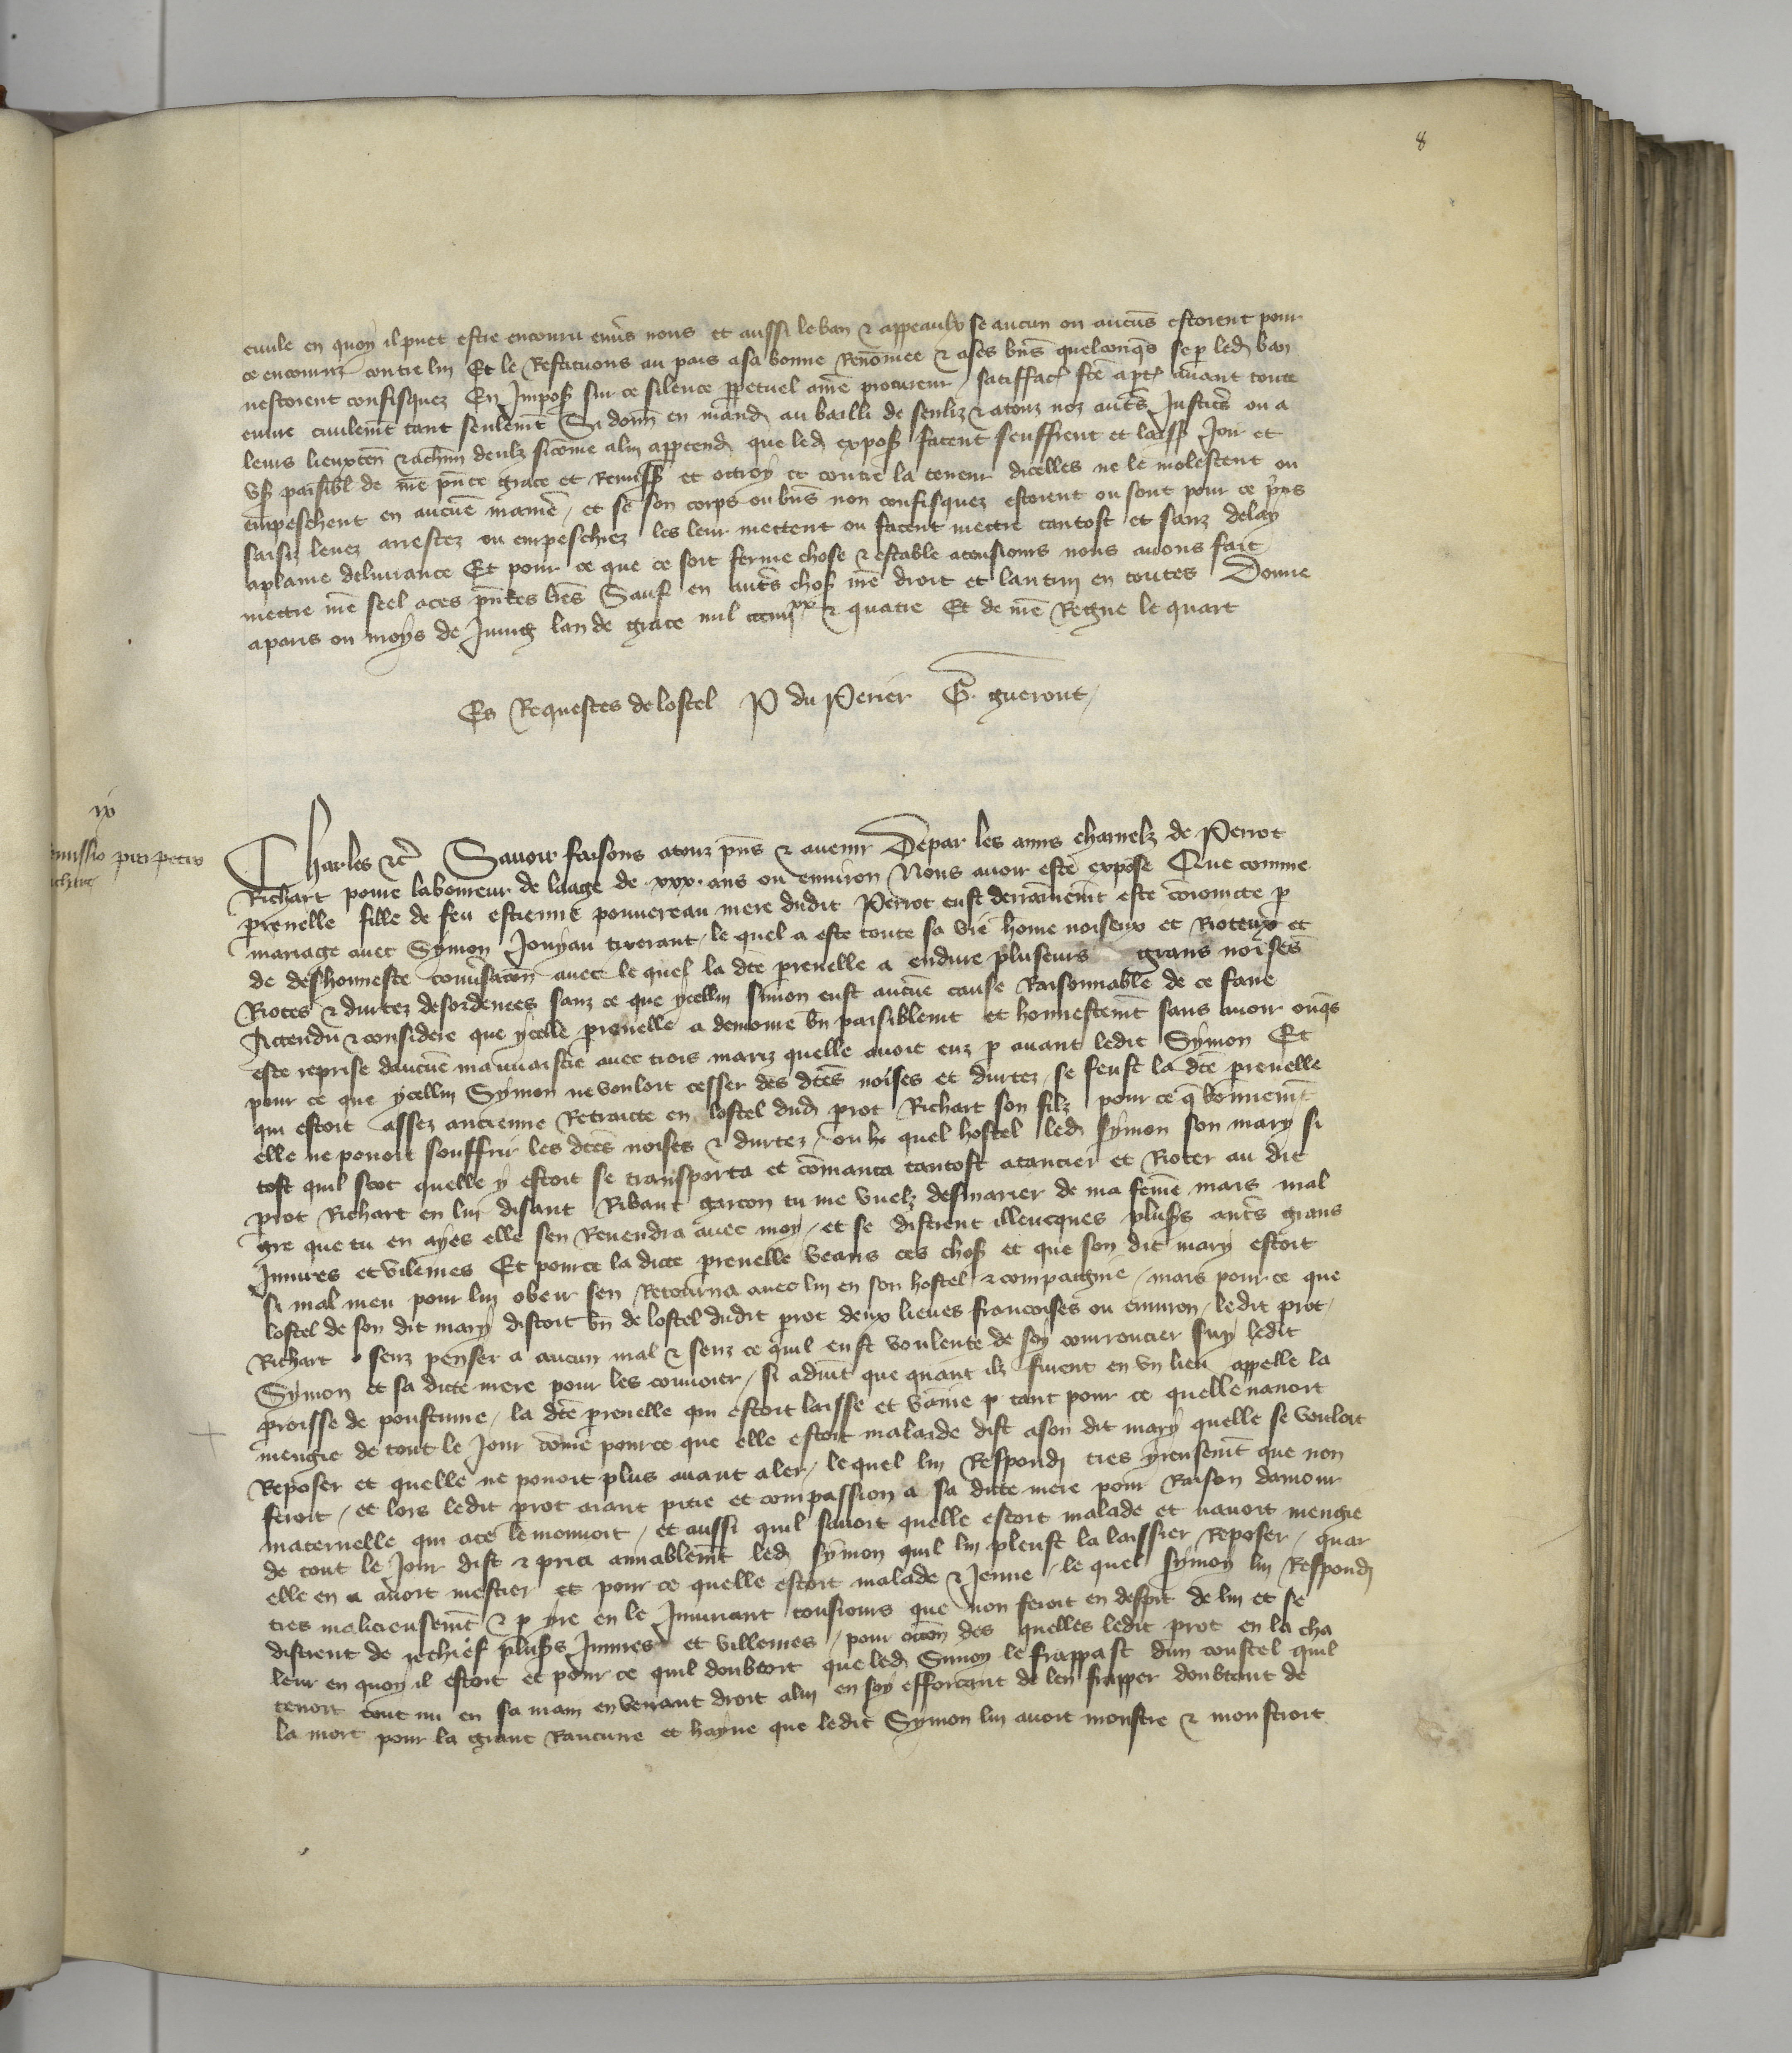 8
civile en quoy il puet estre encouru envs nous et aussi le ban & appeaulx se aucun ou aucūs estoient pour
ce encouruz contre lui Et le Restituons au pais a sa bonne Renōmee & a ses bn̄s quelconq̄s se p led ban
nestoient confisquez En Impost sur ce silence ppetuel a nr̄e procureur / satisffacō fcē a ptē avant toute
euvre civilem̄t tant seulem̄t Si donn̄ en mand au bailli de senliz & a touz noz autrs Justicrs ou a
leurs lieuxten̄ & a chun̄ deulz sicōme a lui apptend que led expost facent seuffrent et laisst Joir et
ust paisibl de nr̄e pn̄te grace et Remisst et ottroy et contre la teneur dicelles ne le molestent ou
empeschent en aucūe maniē / et se son corps ou bn̄s non confisquez estoient ou sont pour ce prins
saisiz levez arrestez ou empeschiez les leur mettent ou facent mettre tantost et sanz delay
a plaine delivrance Et pour ce que ce soit ferme chose & estable a tousiours nous avons fait
mettre nr̄e seel a ces pn̄tes lr̄es Sauf en autrs chost nr̄e droit et lautruy en toutes Donne
a paris ou moys de Juing lan de grace mil ccciiijxx & quatre Et de nr̄e Regne le quart
Es Requestes de lostel P du Perier G. gueront /
ix
Charles &c Savoir faisons a touz pn̄s & avenir De par les amis charnelz de Perrot
Richart povre laboureur de laage de .xxx. ans ou environ Nous avoir este expose Que comme
prenelle fille de feu estienne pouvereau mere dudit Perrot eust derrainem̄t este coniointe p
mariage avec Symon Jouyau tixerant / le quel a este toute sa vie hōme noiseux et Rioteux et
de deshonneste convsacōn avec le quel la dcē prenelle a endure pluseurs grans noises
Riotes & durtez desordenees sanz ce que ycellui simon eust aucūe cause Raisonnable de ce faire
Attendu & considere que ycelle prenelle a demoure bn̄ paisiblem̄t et honnestem̄t sans avoir onqs
este reprise daucūe mauvaistie avec trois mariz quelle avoit euz p avant ledit Symon Et
pour ce que ycellui Symon ne vouloit cesser des dcēs noises et durtez / se feust la dcē prenelle
qui estoit assez ancienne Retraicte en lostel dud prot Richart son filz pour ce q̄ bonnem̄t
elle ne pouoit souffrir les dcēs noises & durtez / ou quel hostel led symon son mary si
tost quil scot quelle y estoit se transporta et cōmanca tantost a tancier et Rioter au dit
prot Richart en lui disant Ribaut garcon tu me vuelz desmarier de ma fem̄e mais mal
gre que tu en ayes elle sen Revendra avec moy / et se distrent illeucques plusrs autrs grans
Iniures et vilenies Et pour ce la dicte prenelle veans ces chost et que son dit mary estoit
si mal meu pour lui obeir sen Retourna avec lui en son hostel & compaignie / mais pour ce que
lostel de son dit mary distoit bn̄ de lostel dudit prot deux lieues francoises ou environ / le dit prot /
Richart senz penser a aucun mal & senz ce quil eust voulente de soy courroucier suy ledit
Symon et sa dicte mere pour les convoier / si advint que quant ilz furent en un lieu appelle la
proisse de poustume / la dcē prenelle qui estoit lasse et vaine p tant pour ce quelle navoit
mengie de tout le Jour cōme pour ce que elle estoit malaide dist a son dit mary quelle se vouloit
Reposer et quelle ne pouoit plus avant aler / le quel lui Respond tres yreusem̄t que non
feroit / et lors ledit prot aiant pitie et compassion a sa dicte mere pour Raison damour
maternelle qui a ce le mouvoit / et aussi quil savoit quelle estoit malade et navoit mengie
de tout le Jour dist & pria amiablem̄t led symon quil lui pleust la laissier Reposer / quar
elle en avoit mestier et pour ce quelle estoit malade & Jeune / le quel symon lui Respond
tres malicieusem̄t & p yre en le Iniuriant tousiours que non feroit en despit de lui et se
distrent de rechief plusrs Iniures et villenies / pour occōn des quelles ledit prot en la cha
leur en quoy il estoit et pour ce quil doubtoit que led Simon le frappast dun coustel quil
tenoit tout nu en sa main en venant droit a lui en soy efforcant de len frapper doubtant de
la mort pour la grant Rancune et hayne que ledit Symon lui avoit monstre & monstroit